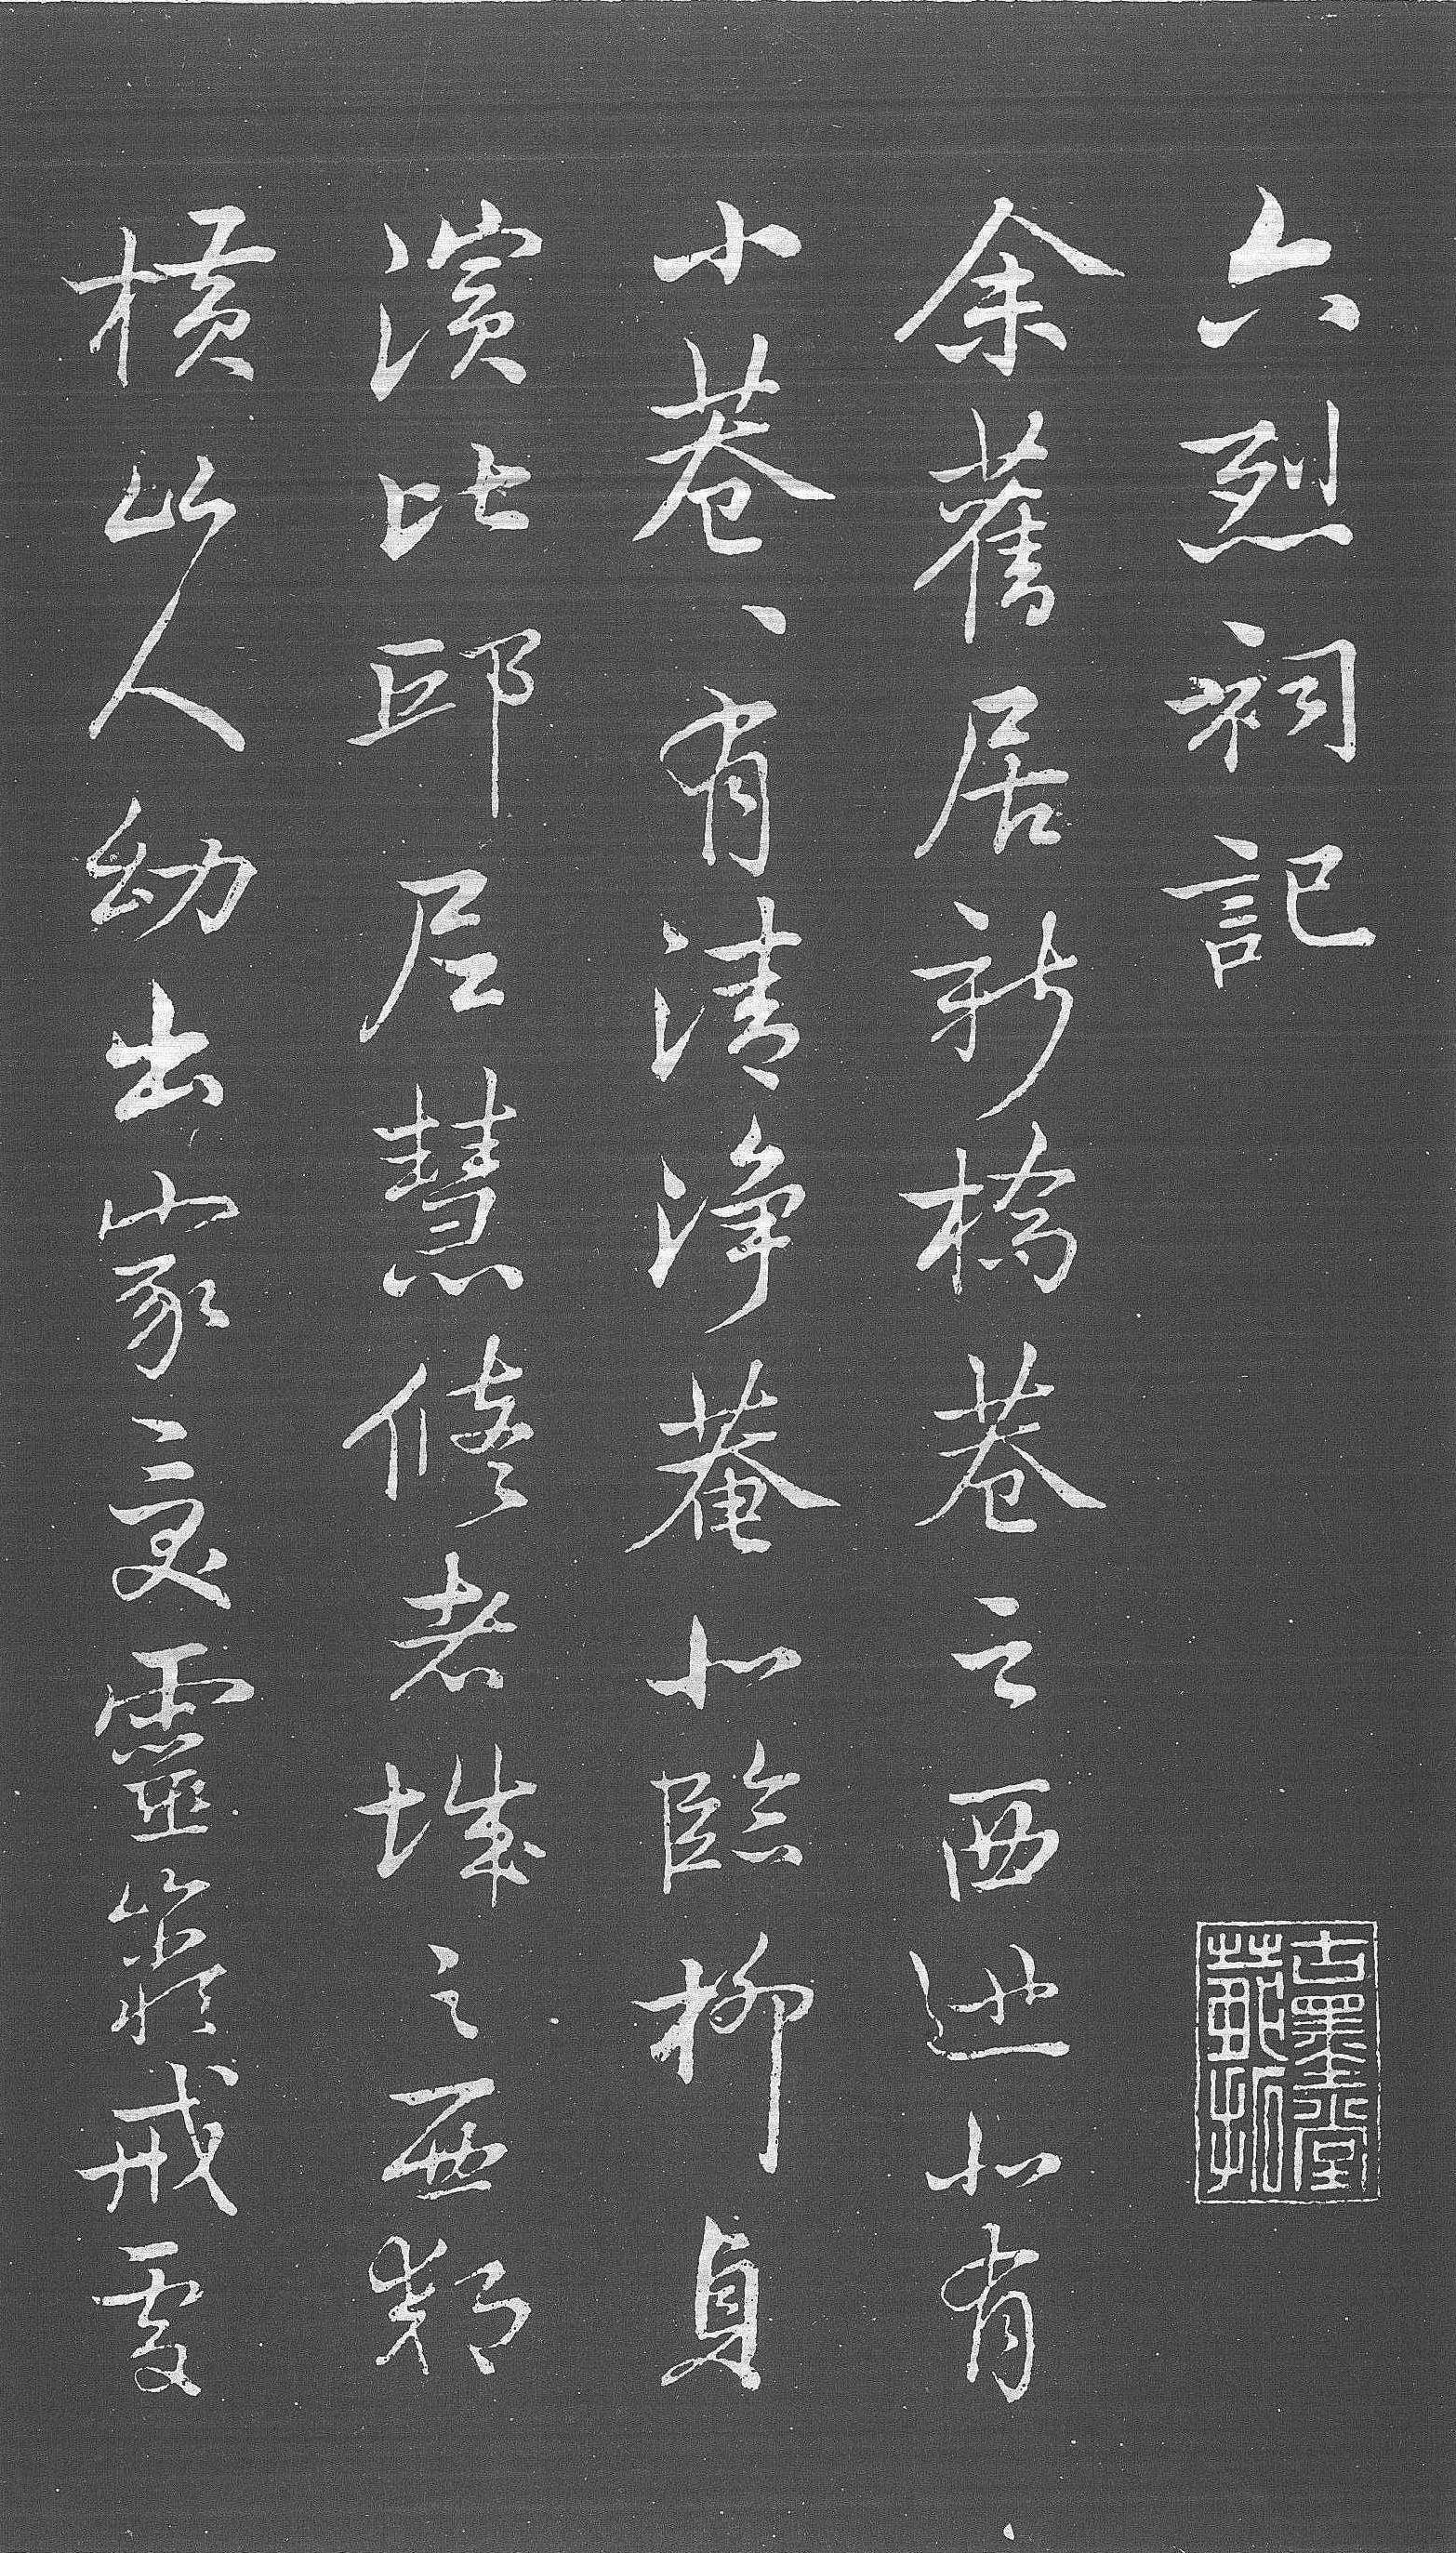 六烈祠記
古墨堂
余舊居新橋巷之西迤北有
小巷、有清淨菴北臨柳貞
濱比邱尼慧修者城之西鄰
橫山人幼出家受靈巖戒處